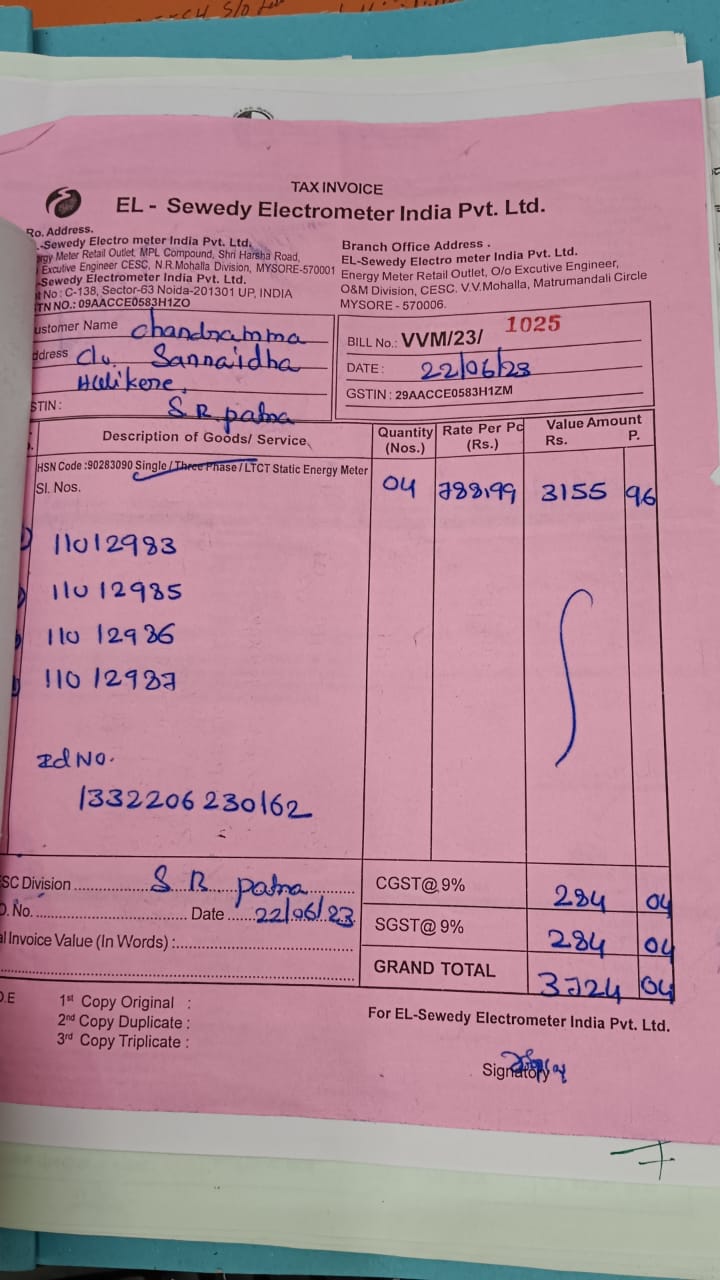 TAX INVOICE
EL - Sewedy Electrometer India Pvt. Ltd.
Ro. Address.
.-Sewedy Electro meter India Pvt. Ltd.
rgy Meter Retail Outlet, MPL Compound, Shri Harsha Road,
Excutive Engineer CESC, N.R.Mohalla Division, MYSORE-570001
-Sewedy Electrometer India Pvt. Ltd.
t No : C-138, Sector-63 Noida-201301 UP, INDIA
TN NO.: 09AACCE0583H1ZO
Branch Office Address .
EL-Sewedy Electro meter India Pvt. Ltd.
Energy Meter Retail Outlet, O/o Excutive Engineer,
O&M Division, CESC. V.V.Mohalla, Matrumandali Circle
MYSORE - 570006.
ustomer Name Chandramma
ddress C/o Sannaidha
Halikere,
STIN : S R patna
BILL No.: VVM/23/ 1025
DATE : 22/06/23
GSTIN : 29AACCE0583H1ZM
Description of Goods/ Service Quantity (Nos.) Rate Per Pc (Rs.) Value Amount Rs. P.
HSN Code :90283090 Single / Three Phase / LTCT Static Energy Meter
Sl. Nos. 04 788.99 3155 96
11012983
11012985
11012986
11012987
Id No.
1332206230162
SC Division S R patna CGST@ 9% 284 04
O. No. Date 22/06/23 SGST@ 9% 284 04
al Invoice Value (In Words) : GRAND TOTAL 3724 04
O.E 1st Copy Original :
2nd Copy Duplicate :
3rd Copy Triplicate :
For EL-Sewedy Electrometer India Pvt. Ltd.
Signatory